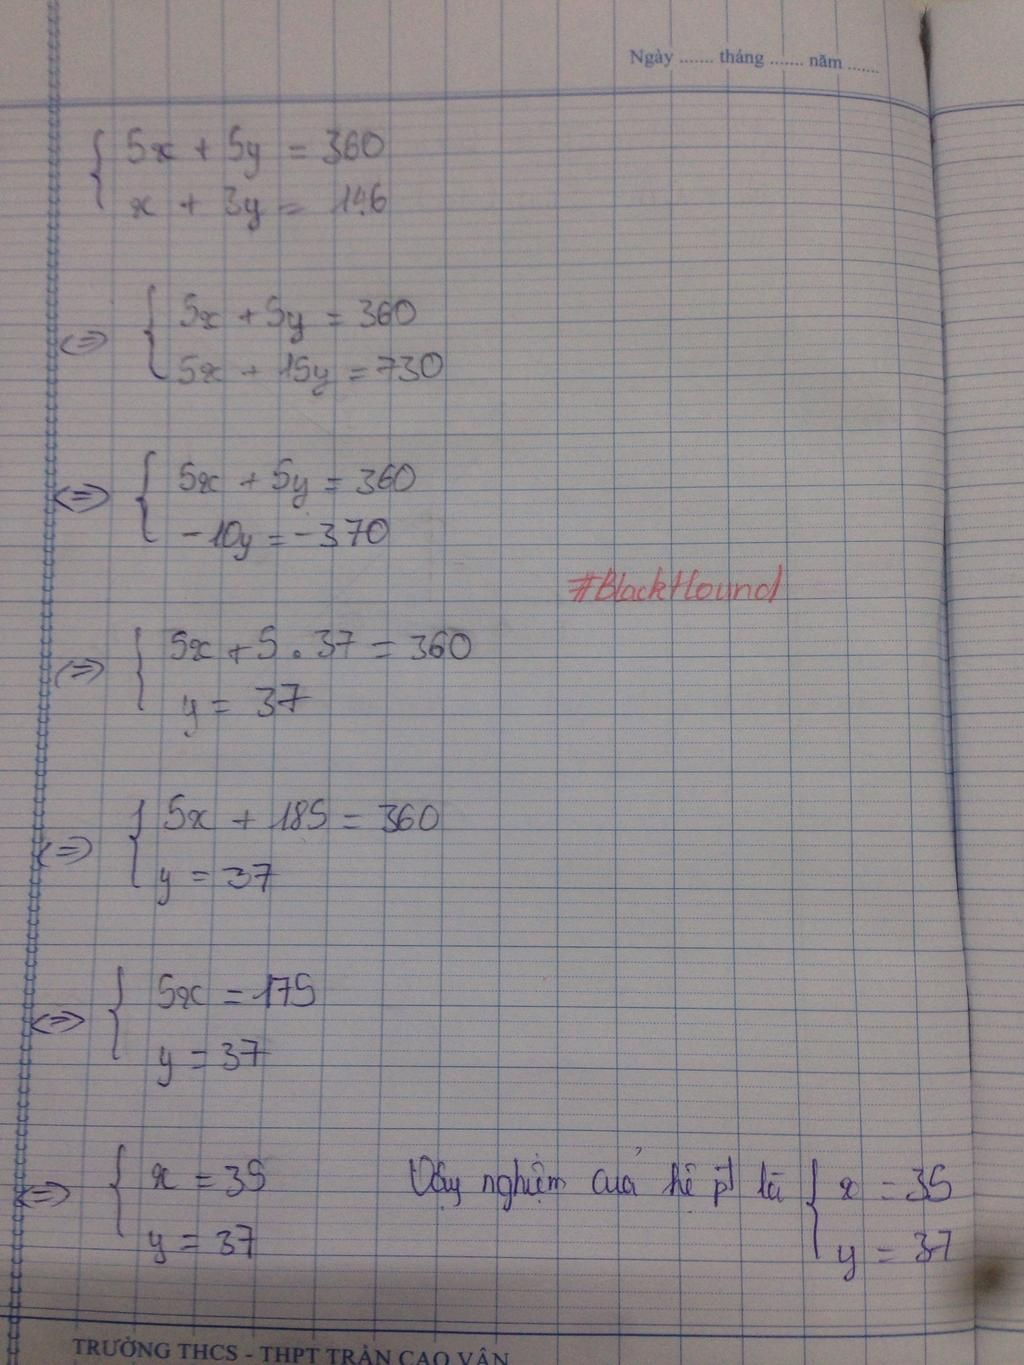 Ngày ....... tháng ....... năm ......
5x + 5y = 360
x + 3y = 146
<=> 5x + 5y = 360
5x + 15y = 730
<=> 5x + 5y = 360
-10y = -370
#BlackHound
<=> 5x + 5 . 37 = 360
y = 37
<=> 5x + 185 = 360
y = 37
<=> 5x = 175
y = 37
<=> x = 35 Vậy nghiệm của hệ pt là x = 35
y = 37 y = 37
TRƯỜNG THCS - THPT TRẦN CAO VÂN